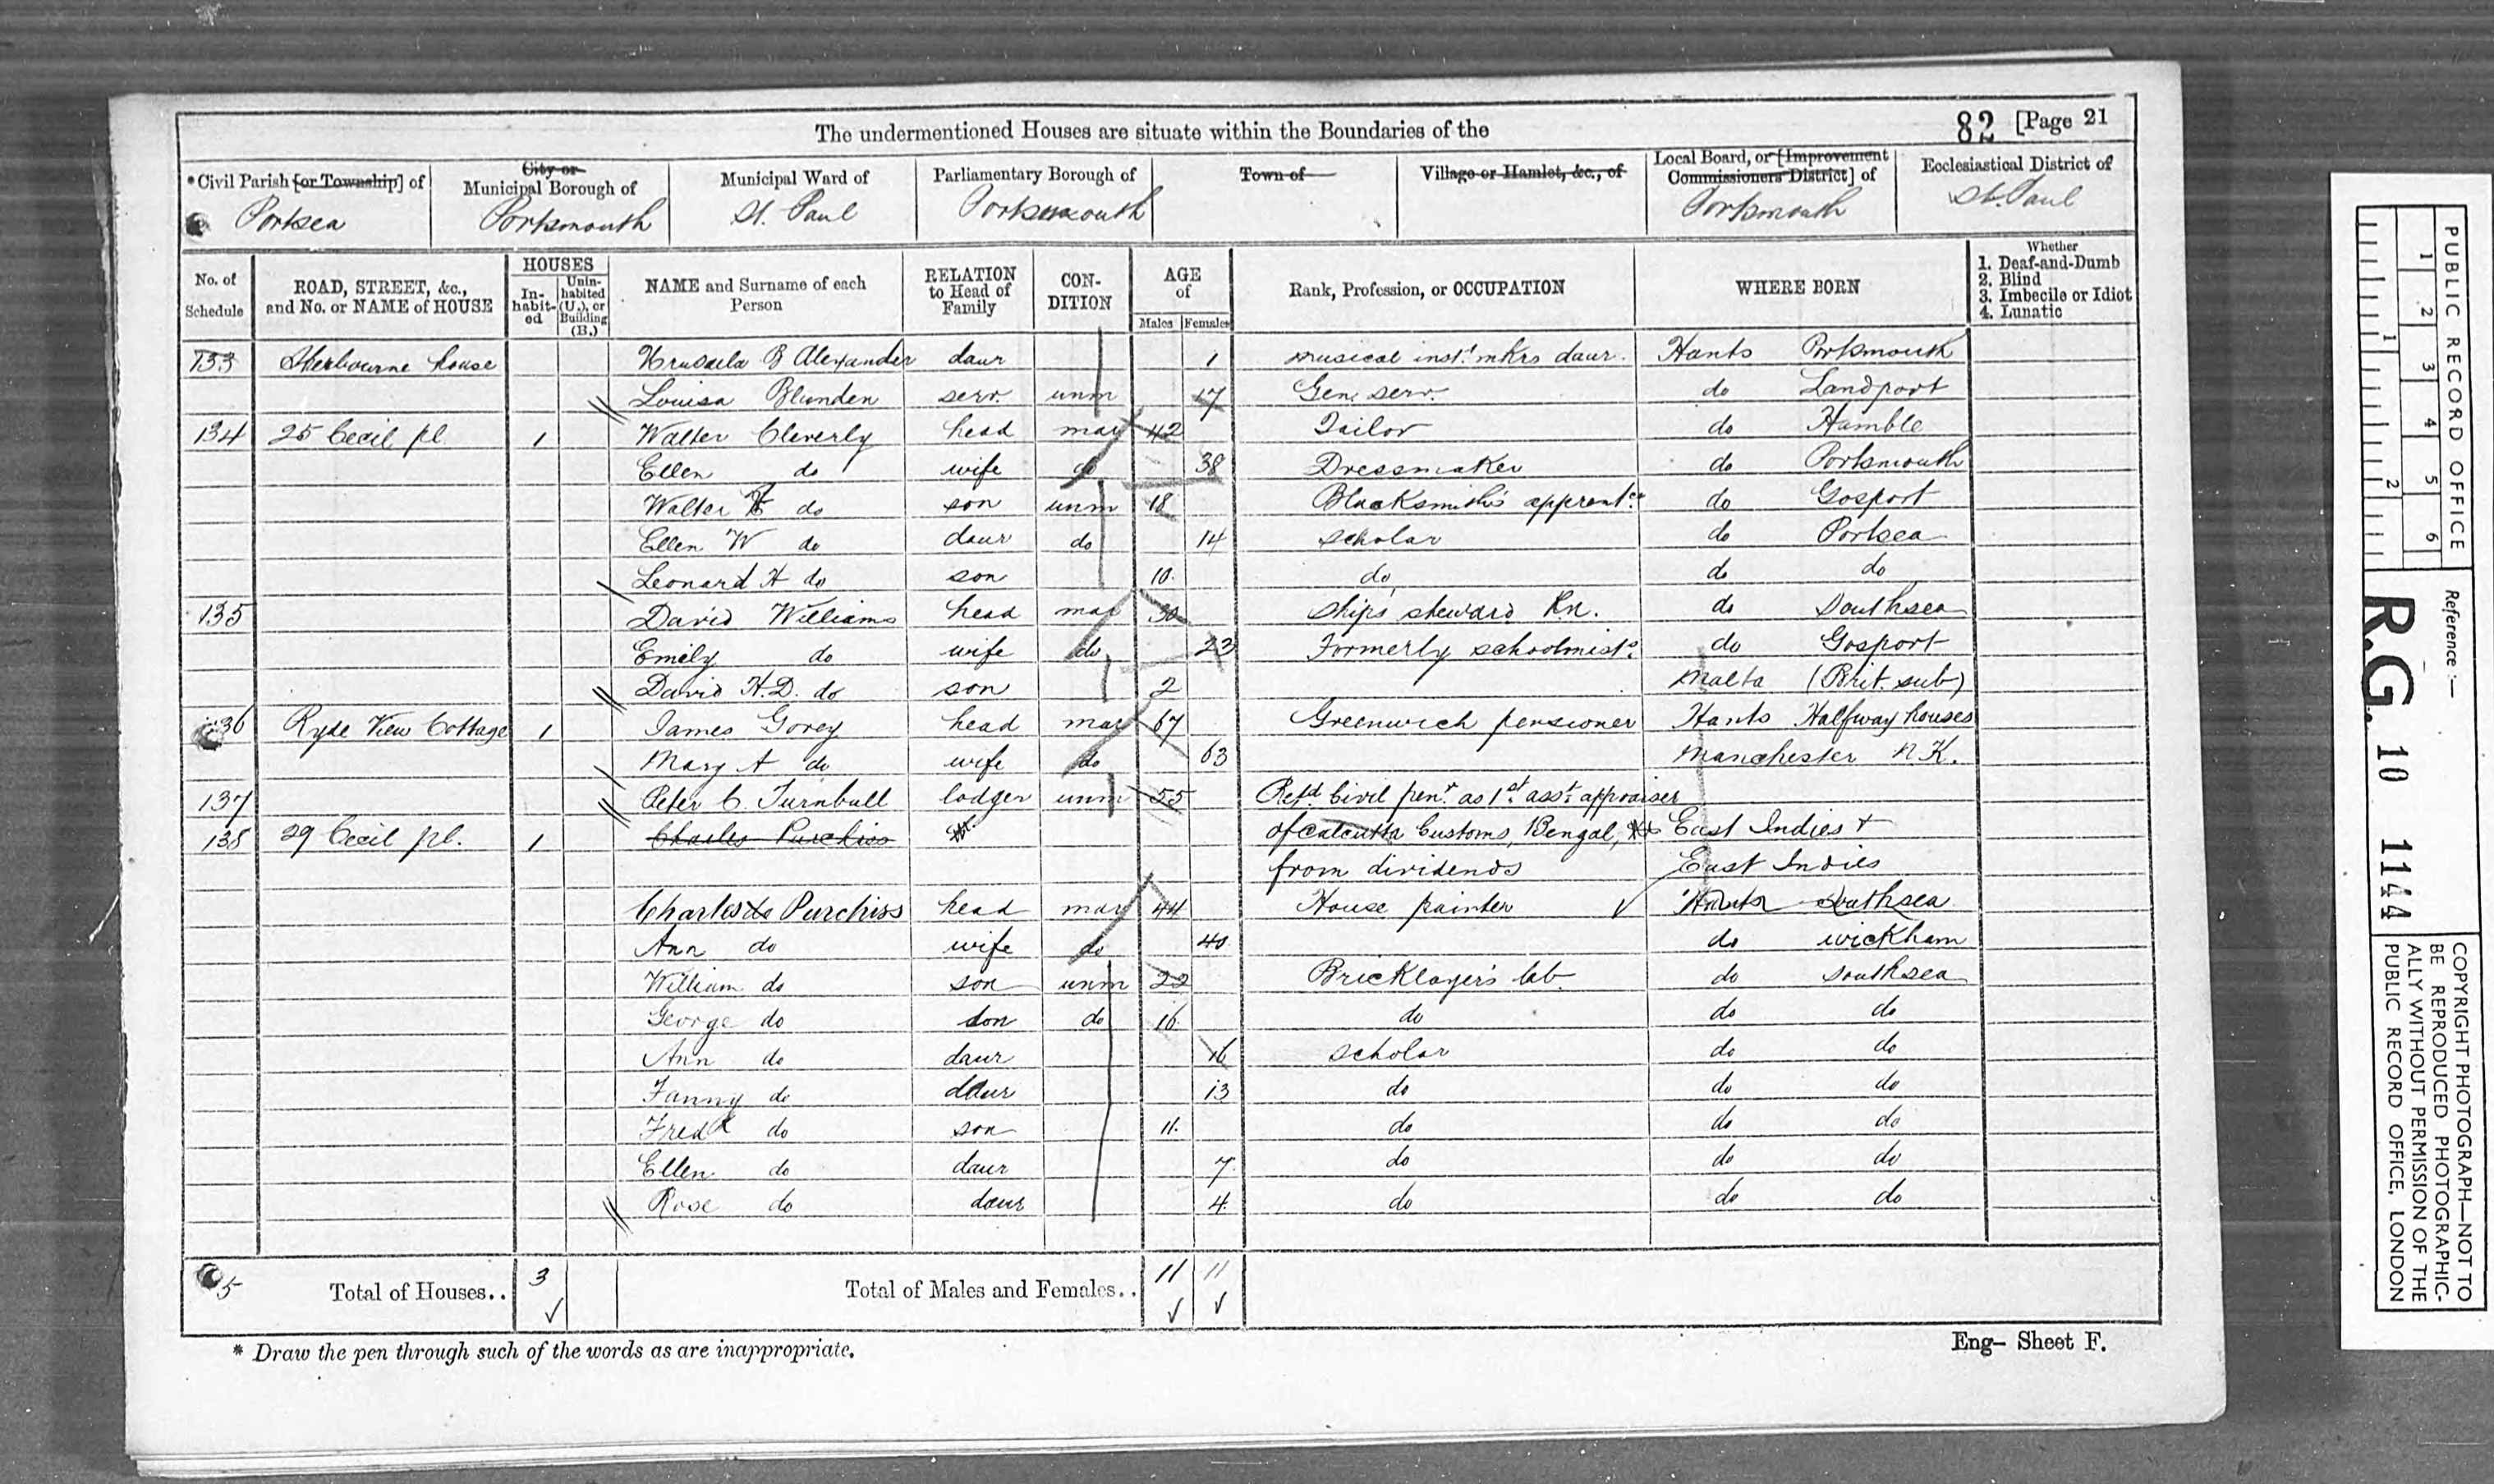 The undermentioned Houses are situate within the Boundaries of the
82 [Page 21
*Civil Parish [or Township] of Portsea
City or Municipal Borough of Portsmouth
Municipal Ward of St. Paul
Parliamentary Borough of Portsmouth
Town of
Village or Hamlet, &c., of
Local Board, or [Improvement Commissioners District] of Portsmouth
Ecclesiastical District of St. Paul
No. of Schedule
ROAD, STREET, &c., and No. or NAME of HOUSE
HOUSES
In-habit-ed
Unin-habited (U.), or Building (B.)
NAME and Surname of each Person
RELATION to Head of Family
CON-DITION
AGE of
Males Females
Rank, Profession, or OCCUPATION
WHERE BORN
Whether
1. Deaf-and-Dumb
2. Blind
3. Imbecile or Idiot
4. Lunatic
133 Sherbourne house B Alexander daur 1 musical inst. mkrs daur. Hants Portsmouth
Louisa Blunden serv. unm 17 Gen. serv. do Landport
134 25 Cecil pl. 1 Walter Cleverly head mar 42 Tailor do Hamble
Ellen do wife do 38 Dressmaker do Portsmouth
Walter do son unm 18 Blacksmith's apprent.ce do Gosport
Ellen W do daur do 14 scholar do Portsea
Leonard H do son 10. do do do
135 David Williams head mar 30 Ship's steward R.N. do Southsea
Emily do wife do 23 Formerly schoolmist.s do Gosport
David H.D. do son 2 Malta (Brit. sub)
136 Ryde View Cottage 1 James Gorey head mar 67 Greenwich pensioner Hants Halfway houses
Mary A do wife do 63 Manchester N.K.
137 Peter C. Turnbull lodger unm 55 Retd. Civil penr. as 1st. asst. appraiser
138 29 Cecil pl. 1 Charles Purchiss of Calcutta Customs, Bengal, East Indies +
from dividends East Indies
Charles do Purchiss head mar 44 House painter ✓ Hants Southsea
Ann do wife do 40 do Wickham
William do son unm 22 Bricklayer's lab. do Southsea
George do son do 16. do do do
Ann do daur 16 scholar do do
Fanny do daur 13 do do do
Fredk do son 11. do do do
Ellen do daur 7. do do do
Rose do daur 4. do do do
5 Total of Houses.. 3 ✓ Total of Males and Females.. 11 ✓ 11 ✓
* Draw the pen through such of the words as are inappropriate.
Eng- Sheet F.
PUBLIC RECORD OFFICE
1 2 3 4 5 6
1 2
Reference :-
R.G. 10 1144
COPYRIGHT PHOTOGRAPH—NOT TO
BE REPRODUCED PHOTOGRAPHIC-
ALLY WITHOUT PERMISSION OF THE
PUBLIC RECORD OFFICE, LONDON